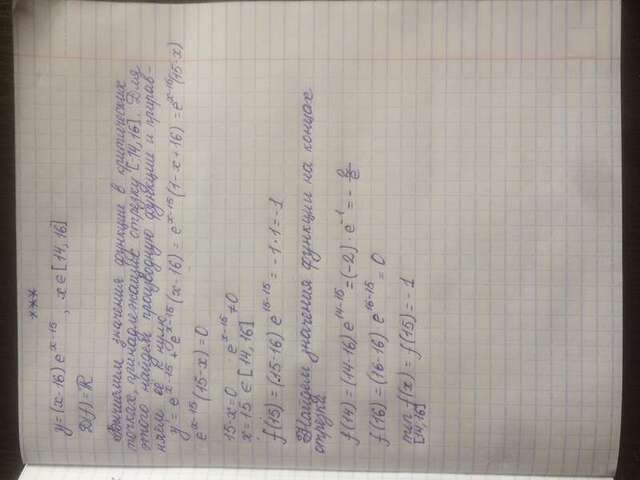 ***
y=(x-16)e^{x-15}, x∈[14,16]
D(f)=R
Вычислим значения функции в критических
точках, принадлежащих отрезку [-14,16]. Для
этого найдём производную функции и прирав-
няем её нулю
y=e^{x-15}+e^{x-15}(x-16)=e^{x-15}(1-x+16)=e^{x-15}(15-x)
e^{x-15}(15-x)=0
15-x=0 e^{x-15}≠0
x=15∈[14,16]
f(15)=(15-16)e^{15-15}=-1·1=-1
Найдём значения функции на концах
отрезка
f(14)=(14-16)e^{14-15}=(-2)·e^{-1}=-2/e
f(16)=(16-16)e^{16-15}=0
min f(x)=f(15)=-1
[14,16]